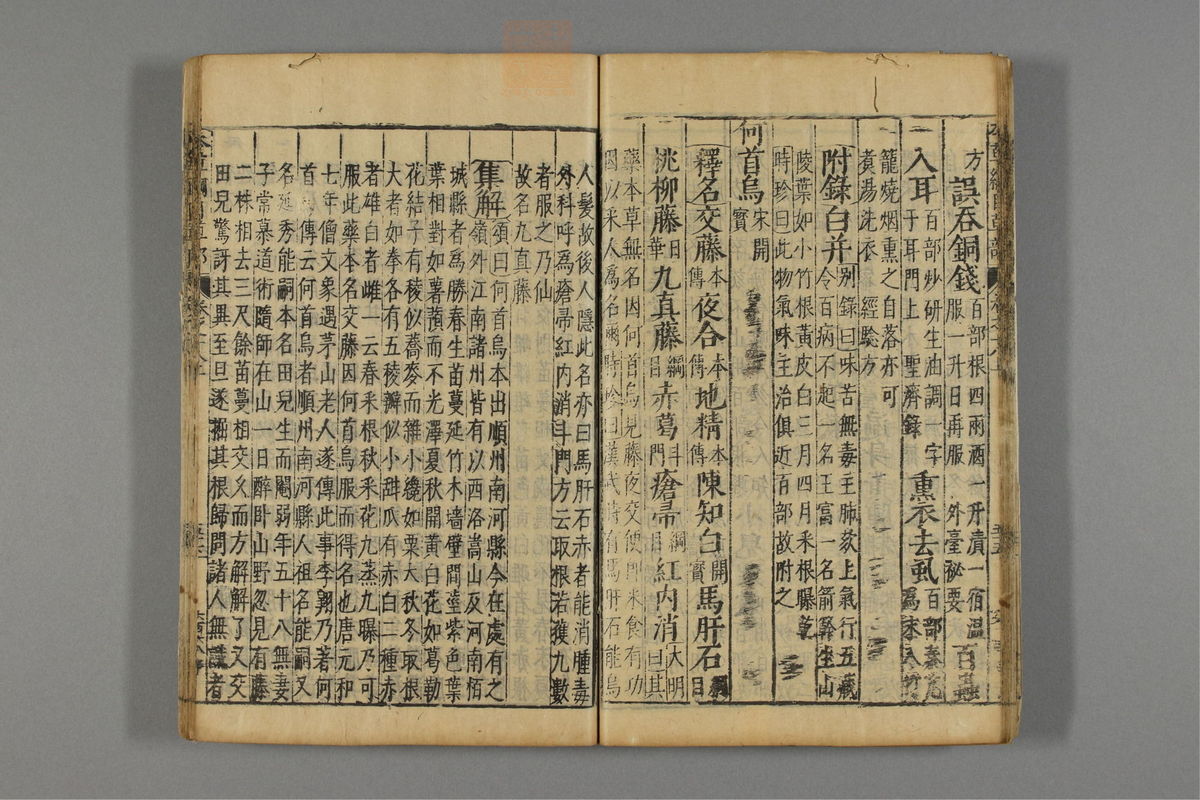 方 誤吞銅錢 百部根四兩酒一升漬一宿溫服一升日再服 外臺祕要 百蟲
入耳 百部炒研生油調一字于耳門上 聖濟錄 熏衣去虱 百部秦艽爲末入竹
籠燒烟熏之自落亦可煑湯洗衣 經驗方
附錄白并 别錄曰味苦無毒主肺欬上氣行五藏令百病不起一名王富一名箭簳生山
陵葉如小竹根黃皮白三月四月采根曝乾時珍曰此物氣味主治俱近百部故附之
何首烏 宋開寳
釋名交藤 本傳 夜合 本傳 地精 本傳 陳知白 開寳 馬肝石 綱目
桃柳藤 日華 九真藤 綱目 赤葛 斗門 瘡帚 綱目 紅内消 大明曰其
藥本草無名因何首烏見藤夜交便即采食有功因以采人爲名爾時珍曰漢武時有馬肝石能烏
人髮故後人隱此名亦曰馬肝石赤者能消腫毒外科呼爲瘡帚紅内消斗門方云取根若獲九數
者服之乃仙故名九真藤
集解 頌曰何首烏本出順州南河縣今在處有之嶺外江南諸州皆有以西洛嵩山及河南栢
城縣者爲勝春生苗蔓延竹木墻壁間莖紫色葉葉相對如薯蕷而不光澤夏秋開黃白花如葛勒
花結子有稜似蕎麥而雜小纔如粟大秋冬取根大者如拳各有五稜瓣似小甜瓜有赤白二種赤
者雄白者雌一云春采根秋采花九蒸九曝乃可服此藥本名交藤因何首烏服而得名也唐元和
七年僧文象遇茅山老人遂傳此事李翱乃著何首烏傳云何首烏者順州南河縣人祖名能嗣父
名延秀能嗣本名田兒生而閹弱年五十八無妻子常慕道術隨師在山一日醉卧山野忽見有藤
二株相去三尺餘苗蔓相交久而方解解了又交田兒驚訝其異至旦遂掘其根歸問諸人無識者